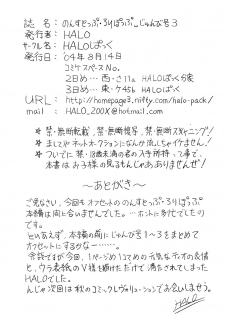 誌 名：のんすとっぷ・るりぱらぷ_じゅんび号3
発行者：HALO
サークル名：HALOぱっく
発行日：'04年8月14日
コミケスペースNo.
2日め… 西・さ11a HALOぱっく分家
3日め… 東・ケ45b HALOぱっく
URL：http://homepage3.nifty.com/halo-pack/
mail：HALO_200X@hotmail.com
＊ 禁・無断転載、禁・無断複写、禁・無断スキャニング!
＊ ましてやネットオークションになんか流しちゃイケません!
＊ ついでに禁・18歳未満の者の入手所持って事で、
本書はお子様の見るもんじゃありませんぜ!
～あとがき～
ごめんなさい、今回もオフセットののんすとっぷ・るりぱらぷ
本編は間に合いませんでした…。ホントに多忙でしたので
すし。
とりあえず、本編の前にじゅんび号1～3をまとめて
オフセットにするかなー……。
余談ですが今回、1ページめ1コマめの元気なティオの表情
と、ウラ表紙のV様を描けただけで満たされてしまった
HALOでした。
んじゃ次回は秋のコミックレヴォリューションでお会いしましょう。
HALO